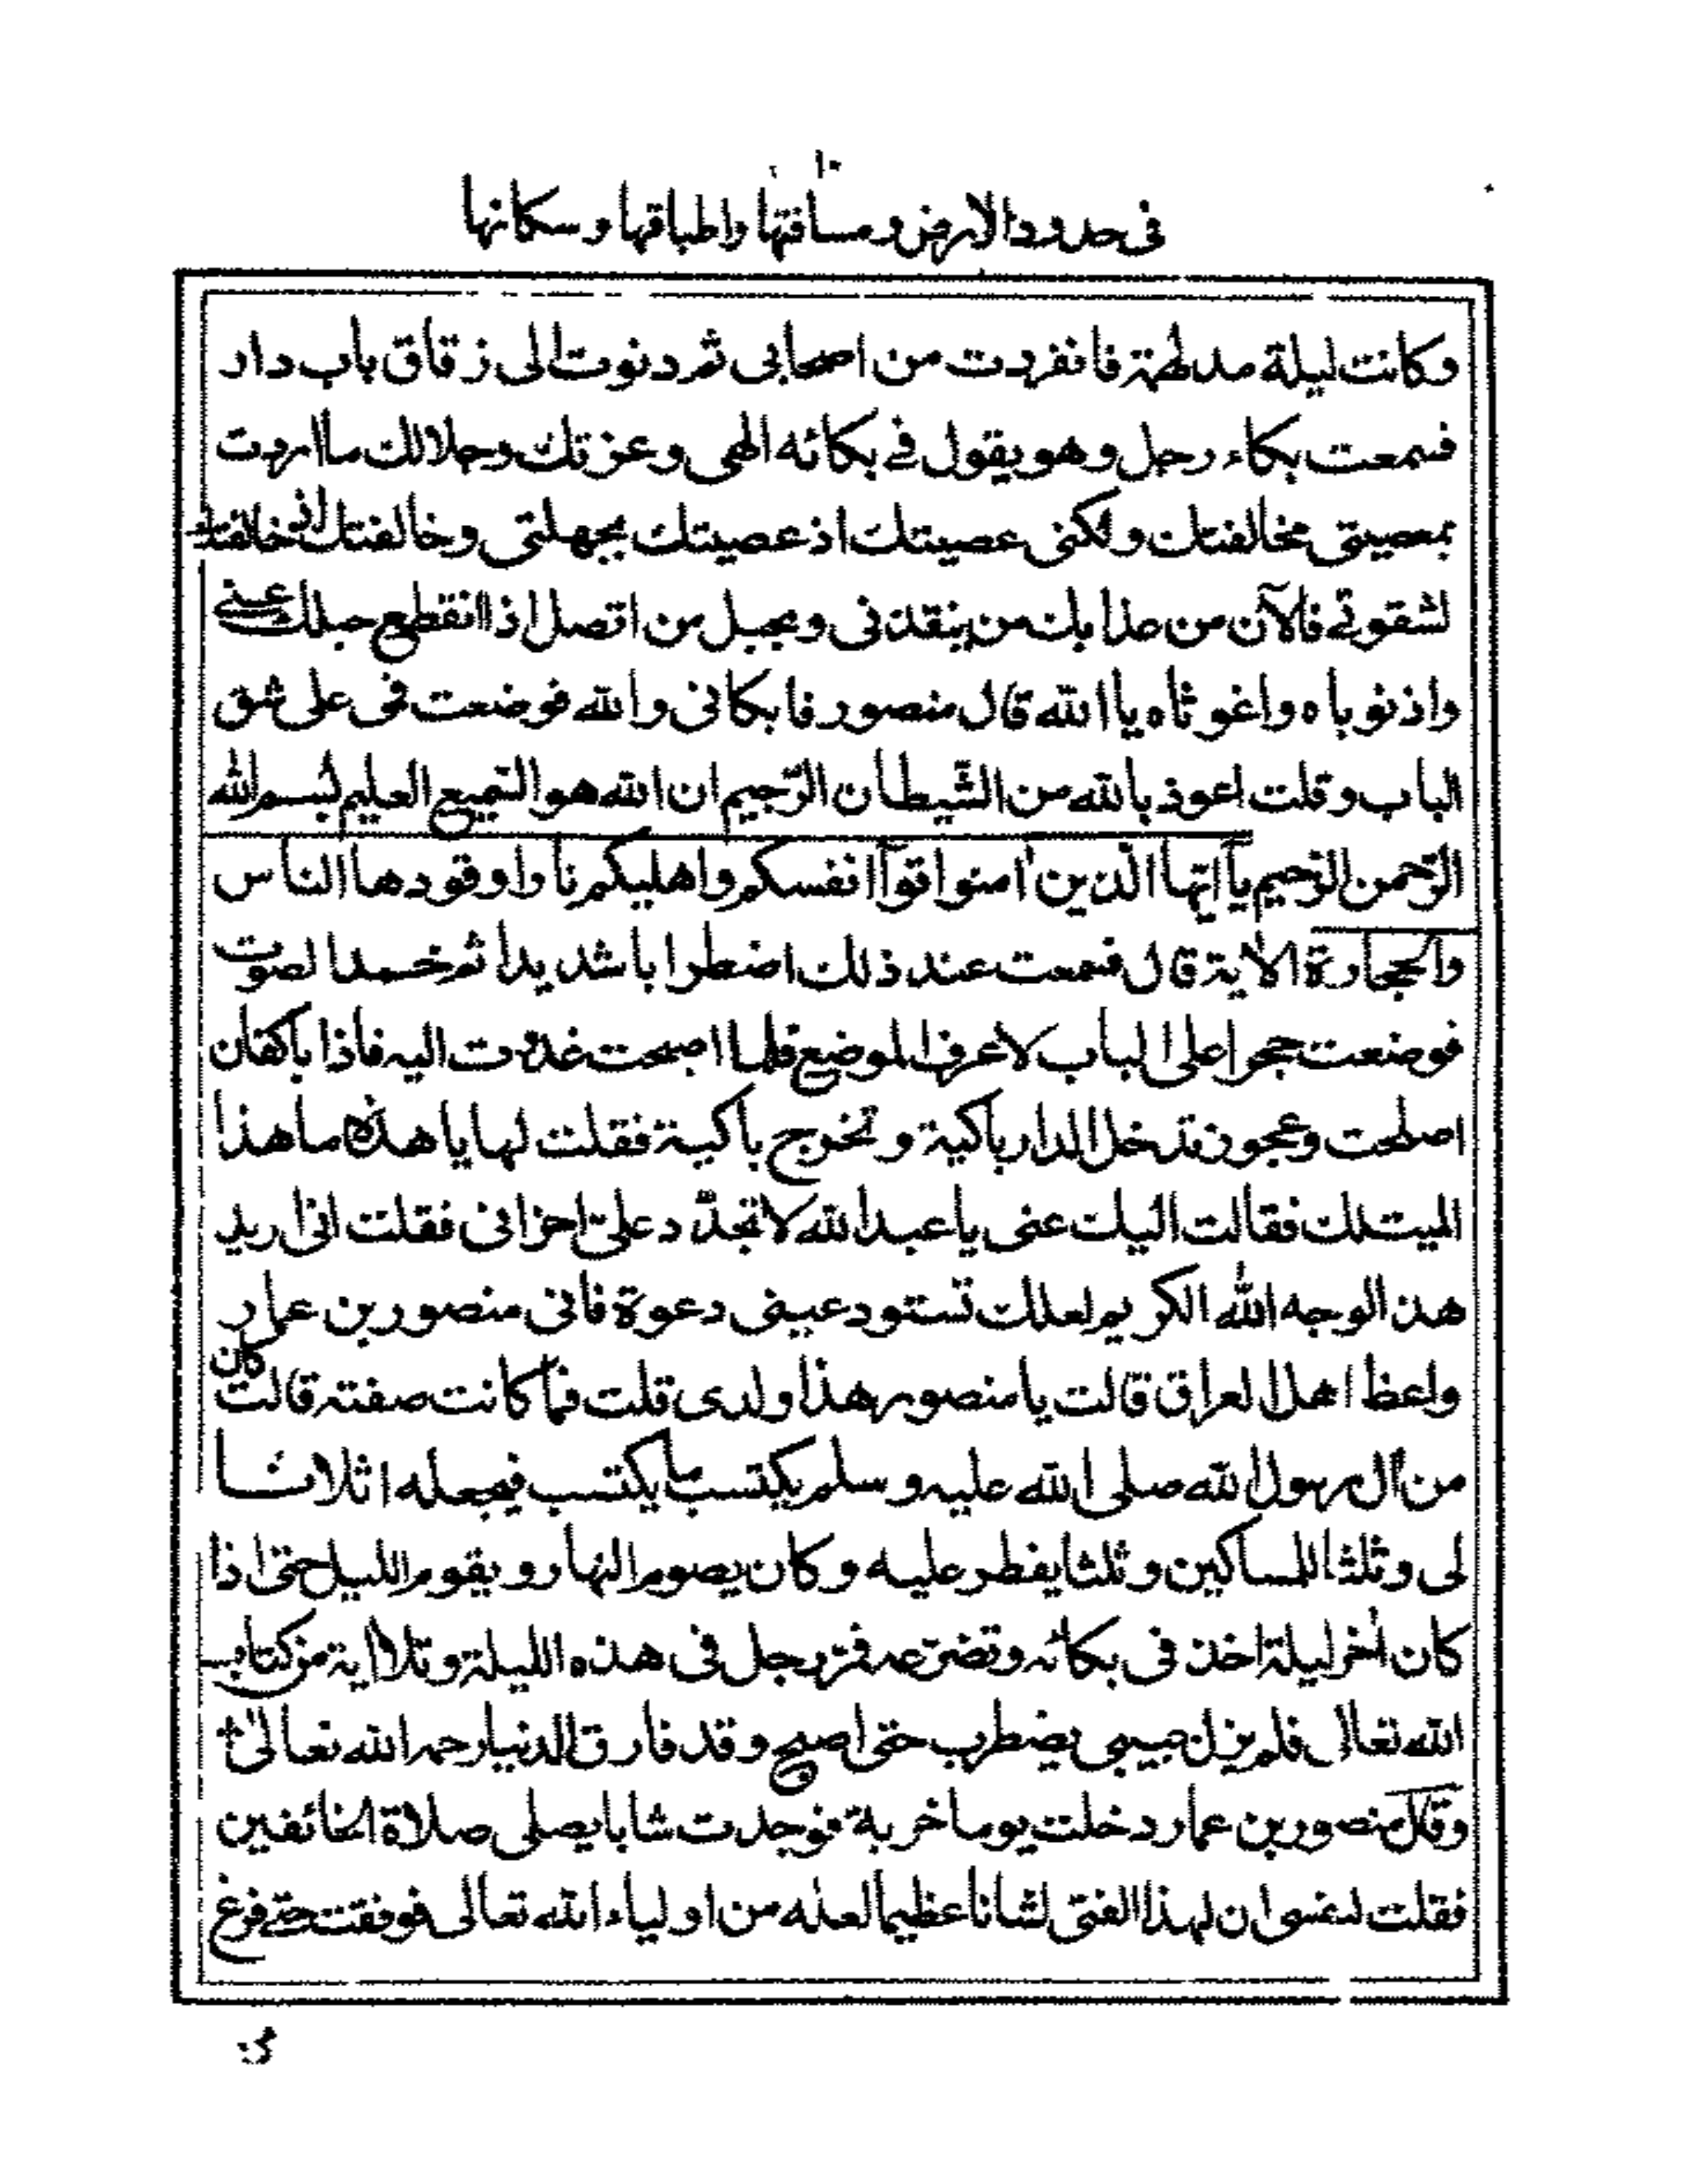 ١٠
في حدود الارض ومسافتها واطباقها وسكانها
وكانت ليلة مدلهمة فانفردت من اصحابى ثم دنوت الى زقاق باب دار
فسمعت بكاء رجل وهو يقول في بكائه الهى وعزتك وجلالك ما اردت
بمعصيتى مخالفتك ولكنى عصيتك اذ عصيتك بجهلتى وخالفتك اذ خالفتك
لشقوتي فالآن من عذابك من ينقذنى وبحبل من اتصل اذا انقطع حبلك عني
واذنوباه واغوثاه يا الله قال منصور فابكانى والله فوضعت فمى على شق
الباب وقلت اعوذ بالله من الشّيطان الرّجيم ان الله هو السّميع العليم بسم الله
الرّحمن الرّحيم يآ ايّها الّذين اٰمنوا قوآ انفسكم واهليكم نارا وقودها الناس
والحجارة الاٰية قال فسمعت عند ذلك اضطرابا شديدا ثم خمد الصوت
فوضعت حجرا على الباب لاعرف الموضع فلما اصبحت غدوت اليه فاذا باكفان
اصلحت وعجوز تدخل الدار باكية وتخرج باكية فقلت لها يا هذه ما هذا
الميت لك فقالت اليك عنى يا عبد الله لا تجدّد علىّ احزانى فقلت انى اريد
هذ الوجه الله الكريم لعلك تستودعينى دعوة فانى منصور بن عمار
واعظ اهل العراق قالت يا منصور هذا ولدى قلت فما كانت صفته قالت كان
من اٰل رسول الله صلى الله عليه وسلم يكتسب ما يكتسب فيجعله اثلاثا
لى وثلثا للمساكين وثلثا يفطر عليه وكان يصوم النهار ويقوم الليل حتى اذا
كان اٰخر ليلة اخذ فى بكائه وتضرّعه فمرّ رجل فى هذه الليلة وتلا اٰية من كتاب
الله تعالى فلم يزل حبيبى يضطرب حتى اصبح وقد فارق الدنيا رحمه الله تعالىٰ
وقال منصور بن عمار دخلت يوما خربة فوجدت شابا يصلى صلاة الخائفين
فقلت لنفسى ان لهذا الفتى لشانا عظيما لعله من اولياء الله تعالى فوقفت حتى فرغ